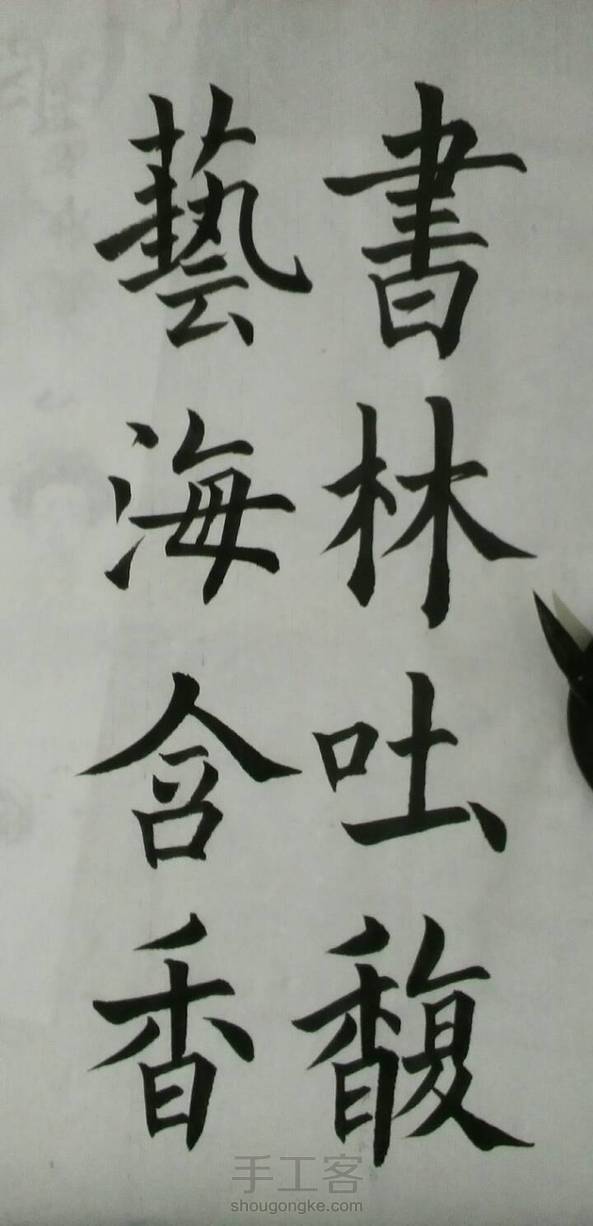 書林吐馥
藝海含香
手工客
shougongke.com